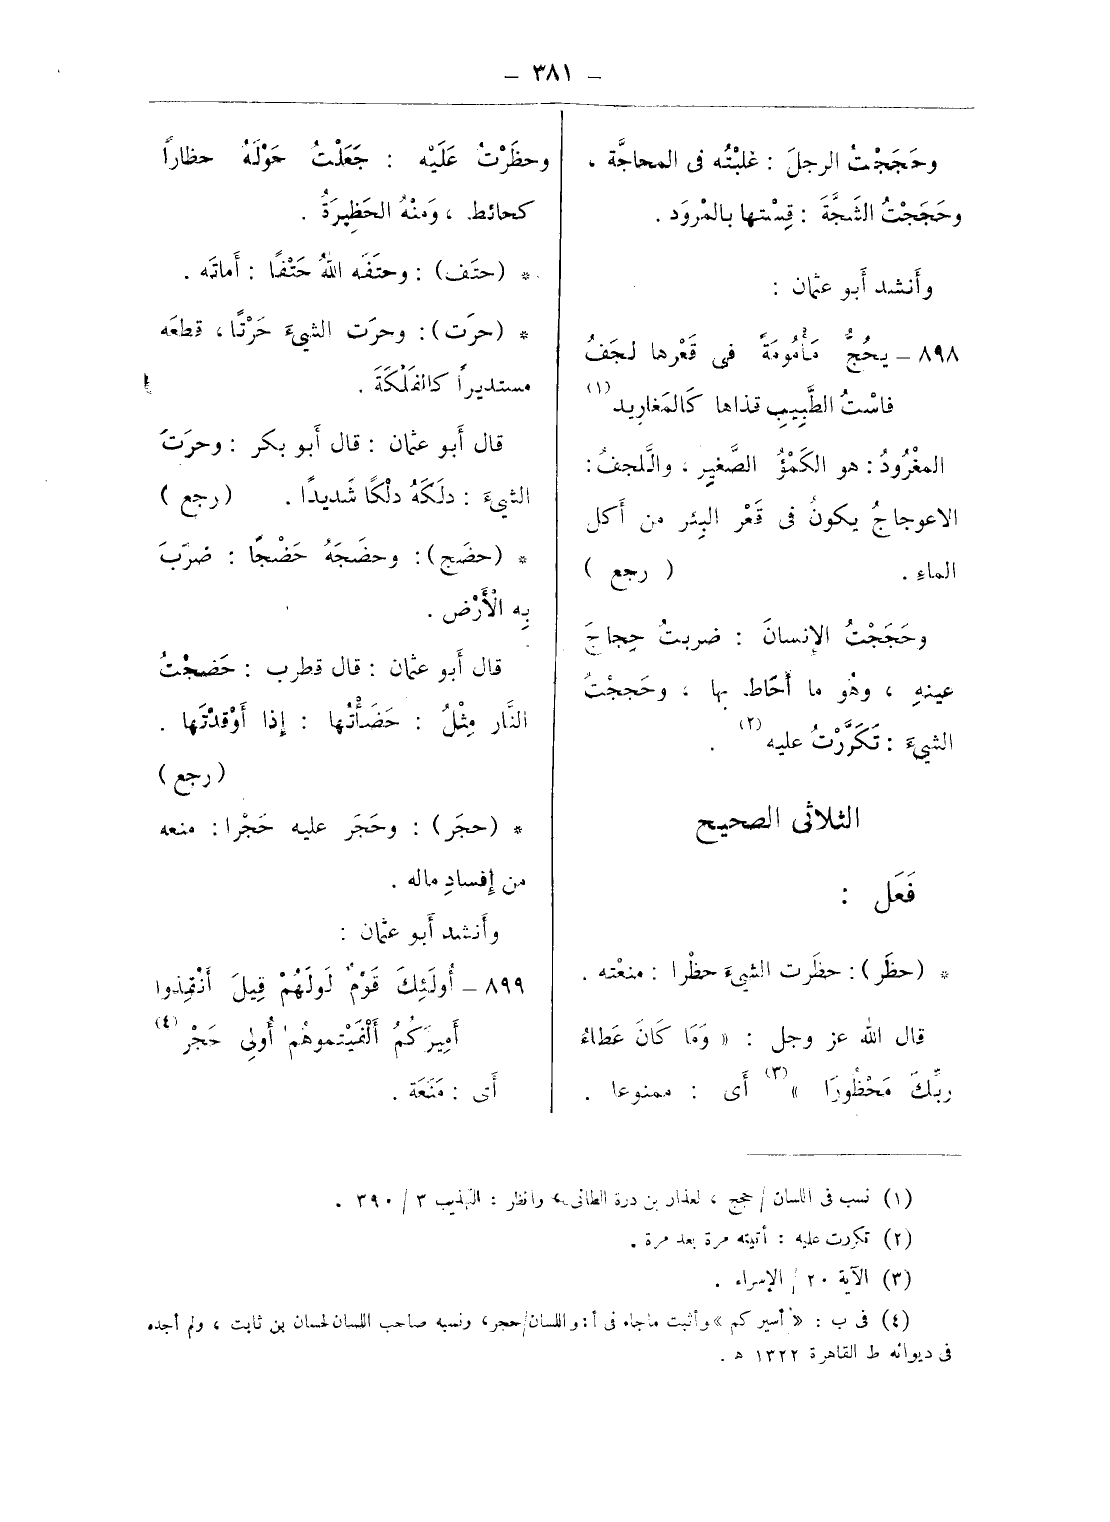 – ٣٨١ –
وحَجَجْتُ الرجلَ : غلبْتُه فى المحاجَّة ،
وحَجَجْتُ الشَّجَّةَ : قِسْتها بالمْرود .
وأَنشد أَبو عثمان :
٨٩٨ – يحُجُّ مَأْمُومَةً فى قَعْرها لجَفُ
فاسْتُ الطَّبِيبِ قذاها كَالمَغاريد (١)
المغْرُودُ : هو الكَمْؤُ الصَّغير ، والَّلجفُ :
الاعوجاجُ يكونُ فى قَعْر البِئْر من أَكل
الماءِ . ( رجع )
وحَجَجْتُ الإنسانَ : ضربتُ حِجاجَ
عينهِ ، وهُو ما أَحَاط بها ، وحَججْتُ
الشىءَ : تَكَرَّرْتُ عليه (٢) .
الثلاثى الصحيح
فَعَل :
* (حظَر) : حظَرت الشىءَ حظْرا : منعْته .
قال الله عز وجل : « وَمَا كَانَ عَطاءُ
ربِّكَ مَحْظُورًا » (٣) أَى : ممنوعا .
وحظَرْتُ عَلَيْه : جَعَلْتُ حَوْلَهُ حظاراً
كحائط ، وَمنْهُ الحَظِيرَةُ .
* (حتَف) : وحتَفَه اللهُ حَتْفًا : أَماتَه .
* (حرَت) : وحرَت الشىءَ حَرْتًا ، قطعَه
مستديراً كالفَلْكَةَ .
قال أَبو عثمان : قال أَبو بكر : وحرَتَ
الشىءَ : دلَكَهُ دلْكًا شَديدًا . ( رجع )
* (حضَج) : وحضَجَهُ حَضْجًا : ضرَبَ
بِه الْأَرْض .
قال أَبو عثمان : قال قطرب : حَضجْتُ
النَّار مِثْلُ : حَضَأْتُها : إذا أَوْقدْتَها .
( رجع )
* (حجَر) : وحَجَر عليه حَجْرا : منعه
من إفسادِ ماله .
وأَنشد أَبو عثمان :
٨٩٩ – أُولَئِكَ قَوْمٌ لَولَهُمْ قِيلَ أَنْفِذوا
أَمِيرَكُمُ أَلْفَيْتموهُم أُولى حَجْر (٤)
أَى : مَنَعَة .
(١) نسب فى اللسان / حجج ، لعذار بن درة الطائى، وانظر : التهذيب ٣ / ٣٩٠ .
(٢) تكررت عليه : أتيته مرة بعد مرة .
(٣) الآية ٢٠ / الإسراء .
(٤) فى ب : « أسير كم » وأثبت ماجاء فى أ : و اللسان/حجر، ونسبه صاحب اللسان لحسان بن ثابت ، ولم أجده
فى ديوانه ط القاهرة ١٣٢٢ ه .